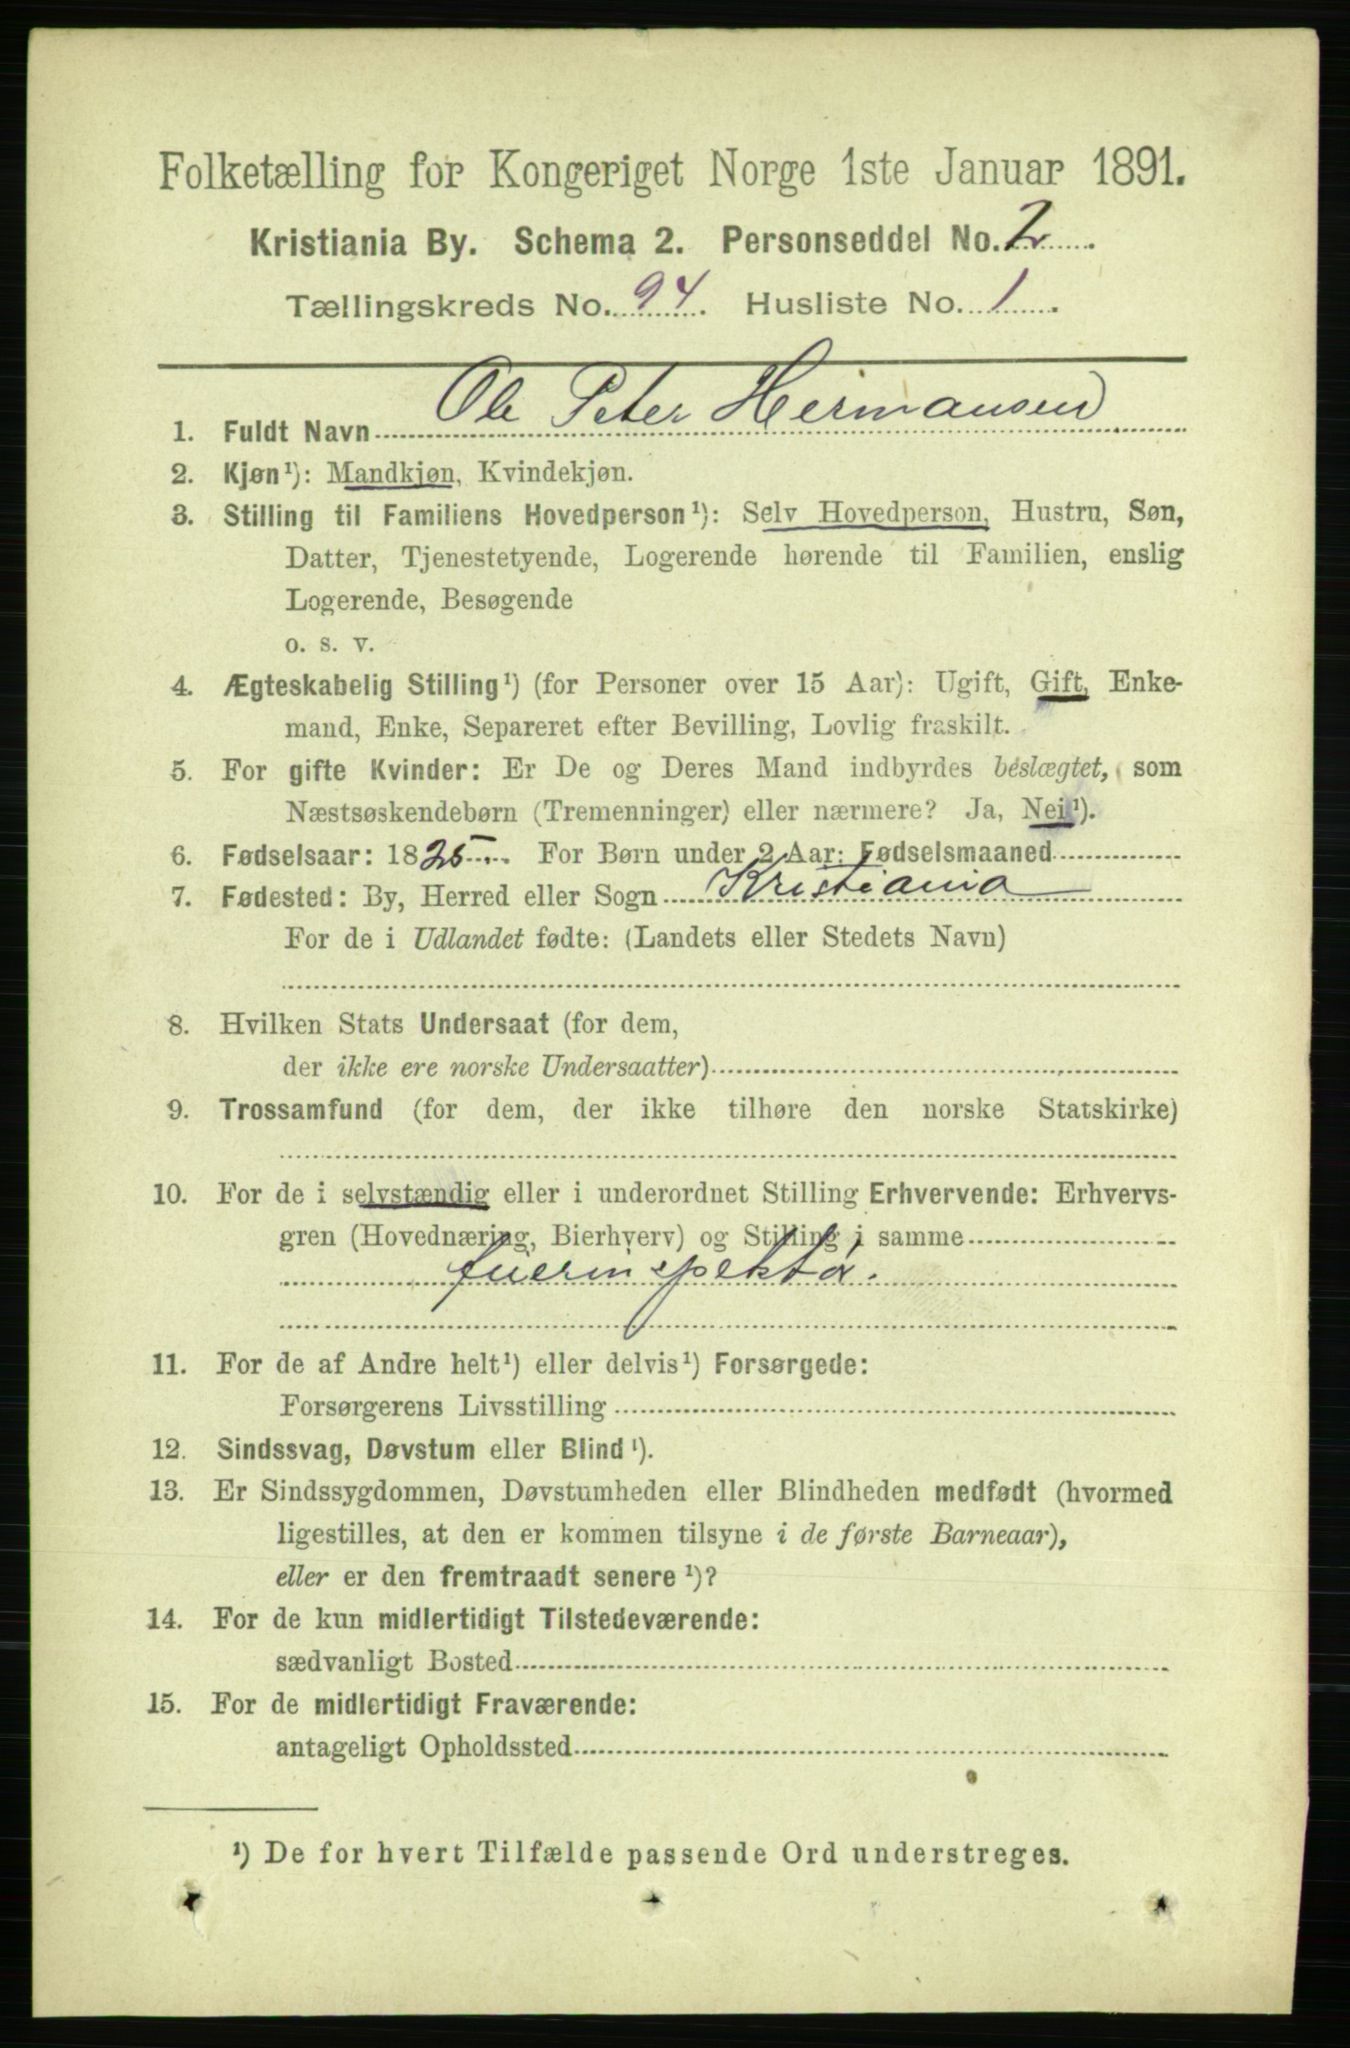 Folketælling for Kongeriget Norge 1ste Januar 1891.
Kristiania By. Schema 2. Personseddel No. 2
Tællingskreds No. 94. Husliste No. 1.
1. Fuldt Navn Ole Peter Hermansen
2. Kjøn¹): Mandkjøn, Kvindekjøn.
3. Stilling til Familiens Hovedperson¹): Selv Hovedperson, Hustru, Søn,
Datter, Tjenestetyende, Logerende hørende til Familien, enslig
Logerende, Besøgende
o. s. v.
4. Ægteskabelig Stilling¹) (for Personer over 15 Aar): Ugift, Gift, Enke-
mand, Enke, Separeret efter Bevilling, Lovlig fraskilt.
5. For gifte Kvinder: Er De og Deres Mand indbyrdes beslægtet, som
Næstsøskendebørn (Tremenninger) eller nærmere? Ja, Nei¹).
6. Fødselsaar: 1825. For Børn under 2 Aar: Fødselsmaaned
7. Fødested: By, Herred eller Sogn Kristiania
For de i Udlandet fødte: (Landets eller Stedets Navn)
8. Hvilken Stats Undersaat (for dem,
der ikke ere norske Undersaatter)
9. Trossamfund (for dem, der ikke tilhøre den norske Statskirke)
10. For de i selvstændig eller i underordnet Stilling Erhvervende: Erhvervs-
gren (Hovednæring, Bierhverv) og Stilling i samme
11. For de af Andre helt¹) eller delvis¹) Forsørgede:
Forsørgerens Livsstilling
12. Sindssvag, Døvstum eller Blind¹).
13. Er Sindssygdommen, Døvstumheden eller Blindheden medfødt (hvormed
ligestilles, at den er kommen tilsyne i de første Barneaar),
eller er den fremtraadt senere¹)?
14. For de kun midlertidigt Tilstedeværende:
sædvanligt Bosted
15. For de midlertidigt Fraværende:
antageligt Opholdssted
¹) De for hvert Tilfælde passende Ord understreges.